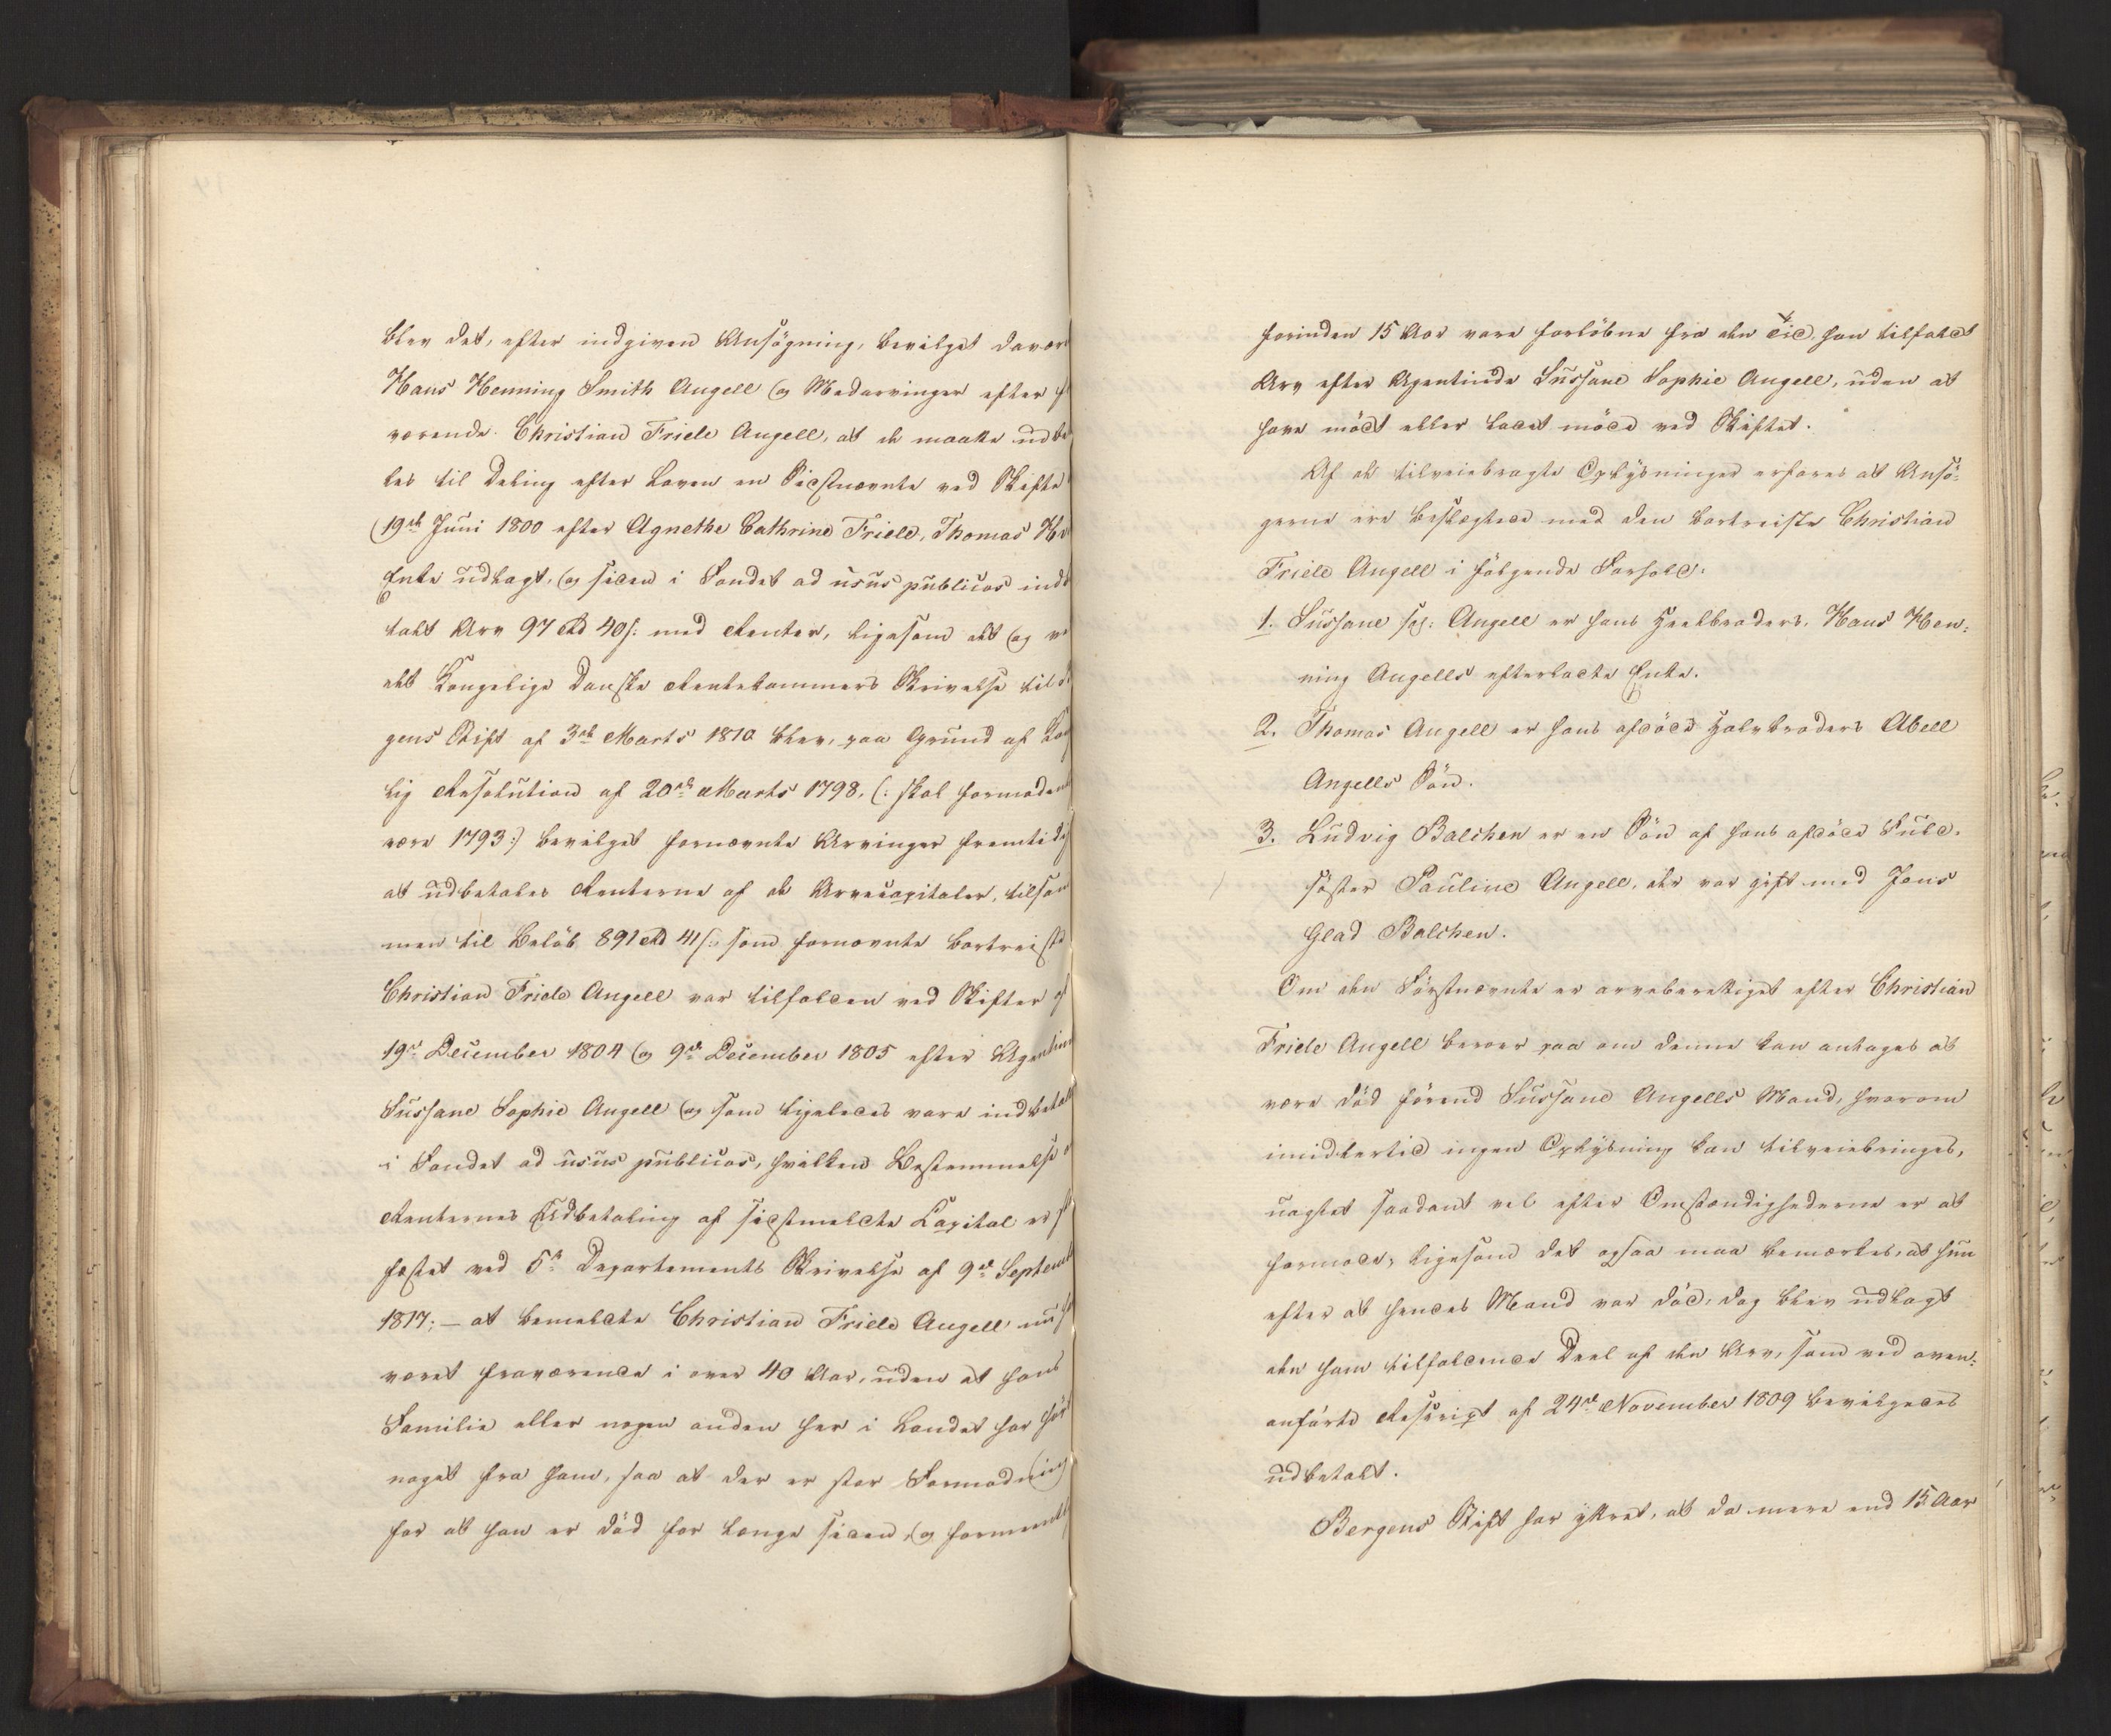 blev det, efter indgiven Ansøgning, bevilget davær
Hans Henning Smith Angell og Medarvinger efter f
værende Christian Friele Angell, at de maatte udbe
les til Deling efter Loven en Sidstnævnte ved Skifte
19de Juni 1800 efter Agnethe Cathrine Friele, Thomas
Enke udlagt, og siden i Fondet ad usus publicos indb
talt Arv 97 Rd 40 s: med Renter, ligesom det og v
det Kongelige Danske Rentekammers Skrivelse til
gens Stift af 3de Marts 1810 blev, paa Grund af Kon
lig Resolution af 20de Marts 1798, (: skal formodent
være 1793:) bevilget fornævnte Arvinger fremtidig
at udbetales Renterne af de Arvecapitaler, tilsam
men til Beløb 891 Rd 41 s: som fornævnte bortreiste
Christian Friele Angell var tilfalden ved Skifter af
19de December 1804 og 9de December 1805 efter Agentind
Sussane Sophie Angell og som ligeledes vare indbetalt
i Fondet ad usus publicos, hvilken Bestemmelse o
Renternes Udbetaling af sidstmeldte Capital er st
fæstet ved 5te Departements Skrivelse af 9de Septemb
1817; – at bemeldte Christian Friele Angell nu h
været fraværende i over 40 Aar, uden at hans
Familie eller nogen anden her i Landet har hørt
noget fra ham, saa at der er stor Formodning
for at han er død for længe siden, og formentl
forinden 15 Aar vare forløbne fra den Tid, han tilfaldt
Arv efter Agentinde Sussane Sophie Angell, uden at
have mødt eller ladet møde ved Skiftet.
Af de tilveiebragte Oplysninger erfares at Ansø-
gerne ere beslægtede med den bortreiste Christian
Friele Angell i følgende Forhold:
1. Sussane sal: Angell er hans Heelbroders, Hans Hen-
ning Angells efterladte Enke.
2. Thomas Angell er hans afdøde Halvbroders Abell
Angells Søn.
3. Ludvig Balchen er en Søn af hans afdøde Fuld-
søster Pauline Angell, der var gift med Jens
Glad Balchen.
Om den Førstnævnte er arveberettiget efter Christian
Friele Angell beroer paa om denne kan antages at
være død førend Sussane Angells Mand, hvorom
imidlertid ingen Oplysning kan tilveiebringes,
uagtet saadant vel efter Omstændighederne er at
formode, ligesom det ogsaa maa bemærkes, at hun
efter at hendes Mand var død, dog blev udlagt
den ham tilfaldende Deel af den Arv, som ved oven-
anførte Rescript af 24de November 1809 bevilgedes
udbetalt.
Bergens Stift har yttret, at da mere end 15 Aar